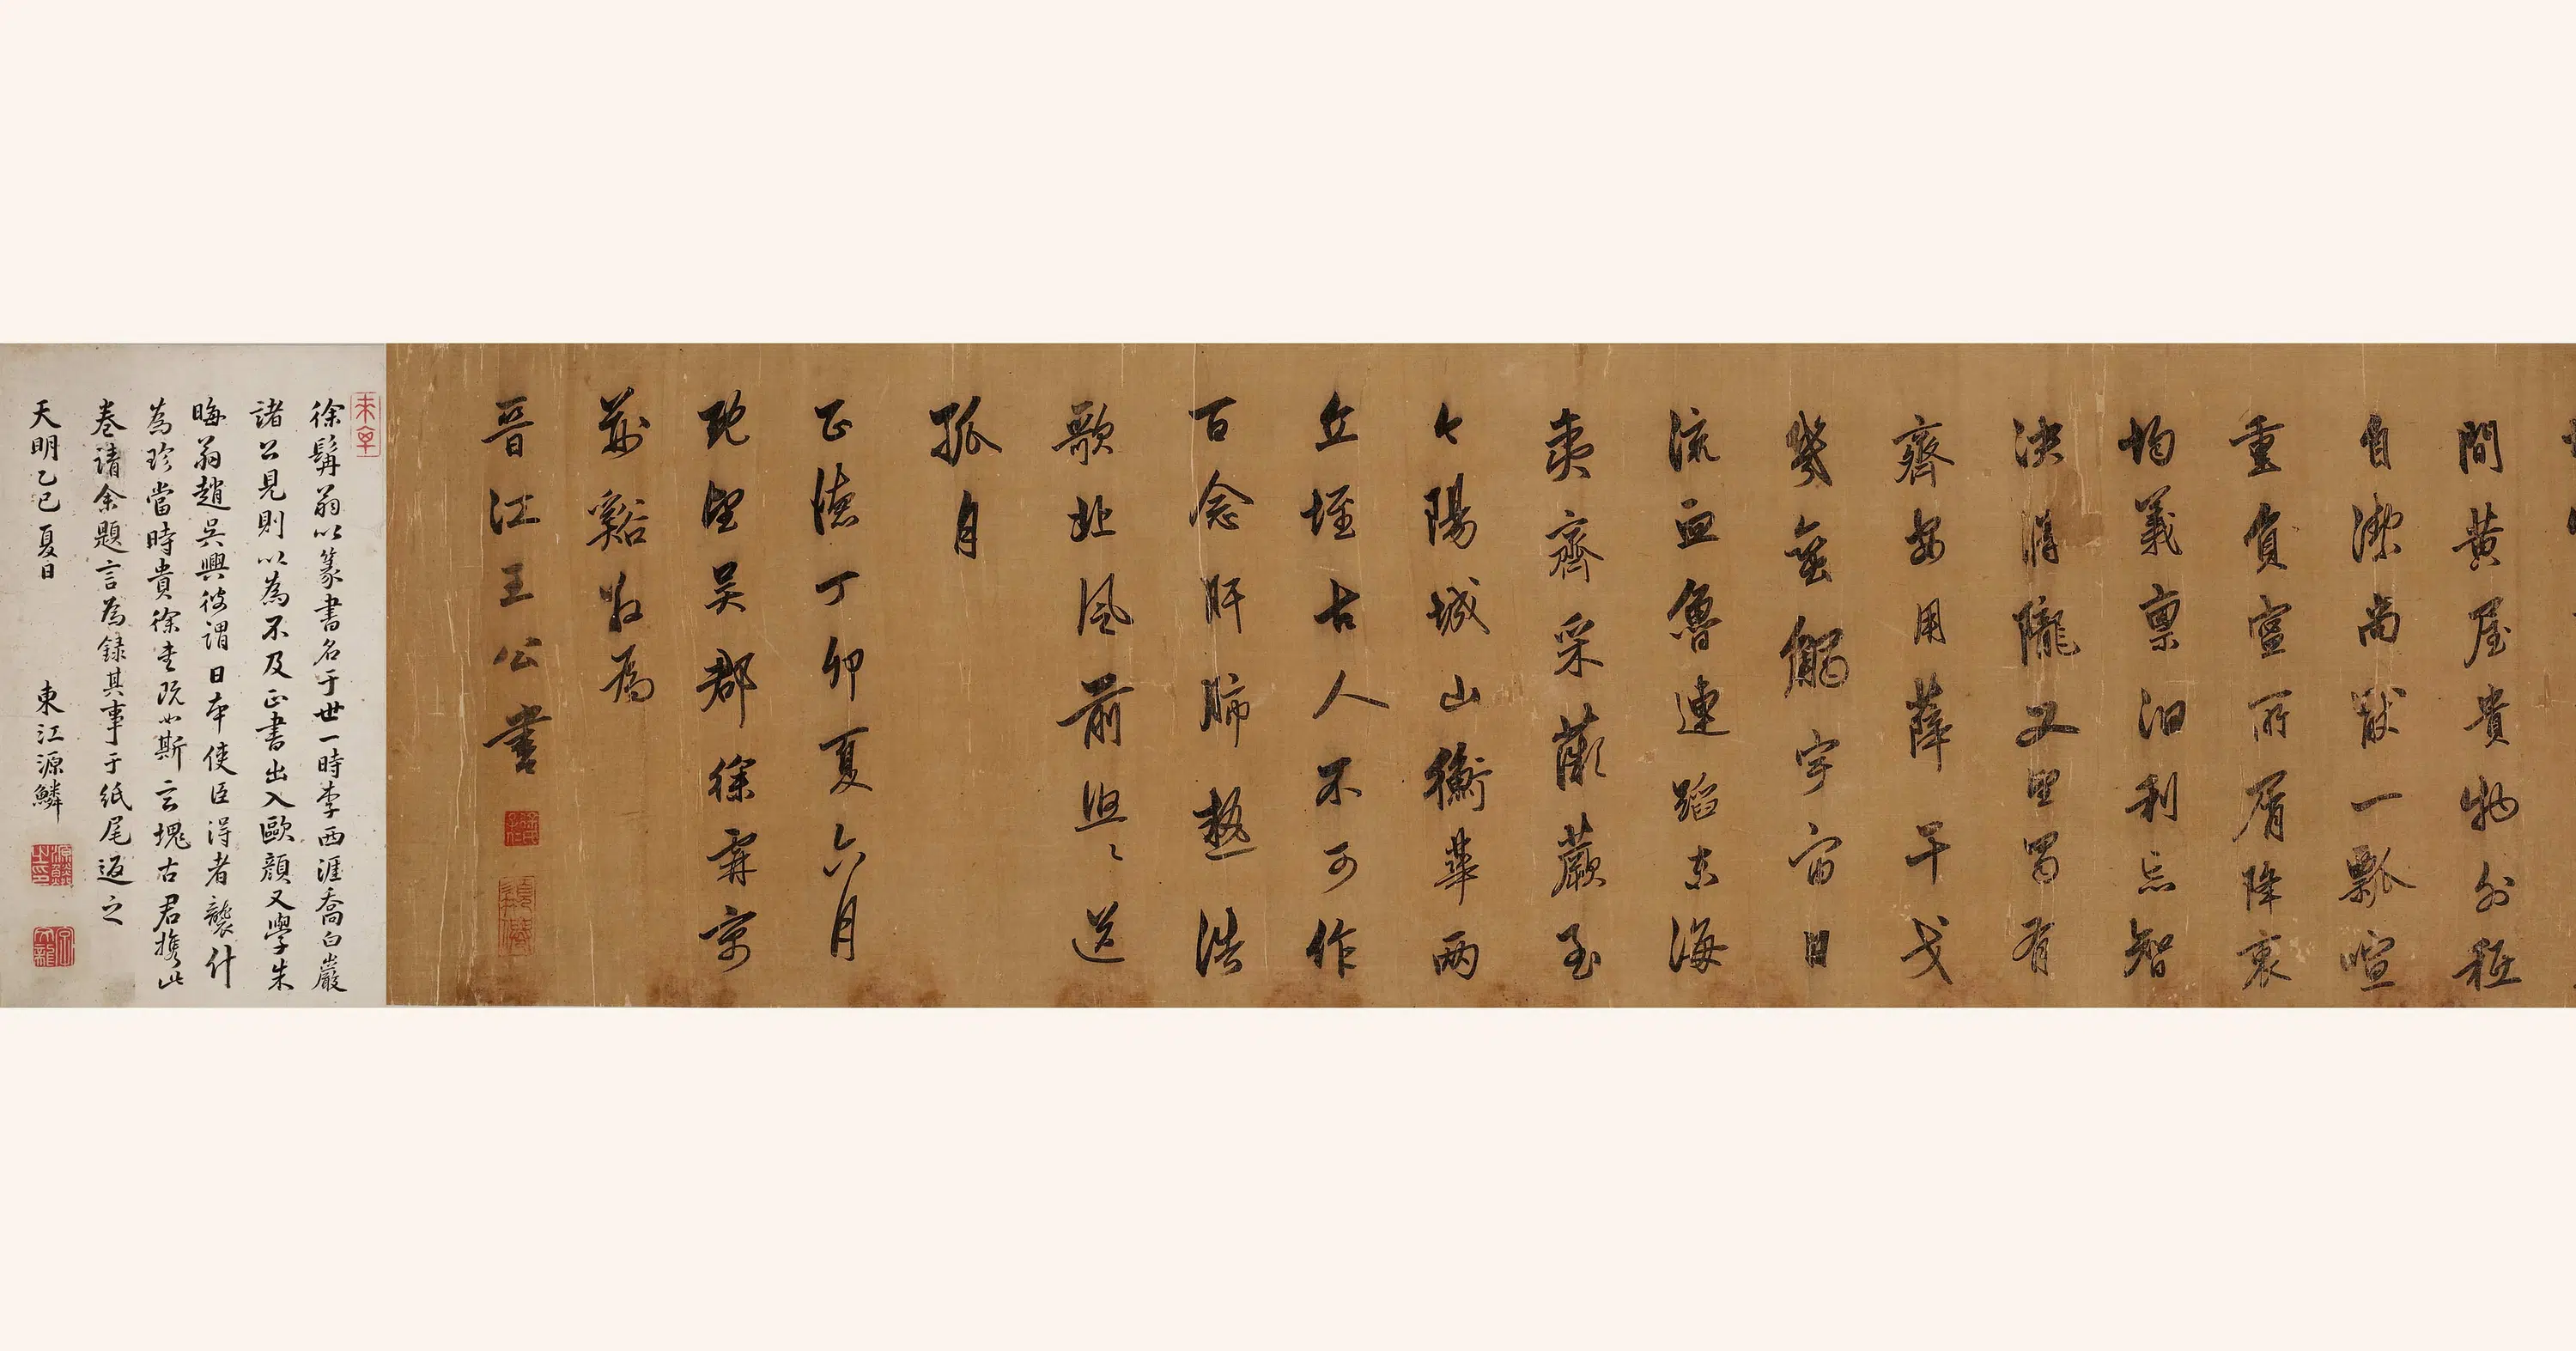 間黄屋貴物外秕
自潔尚猒一瓢喧
重負寧所屑降衷
均義禀汩利忘智
決得隴又望蜀有
齊安用薛干戈
幾蠻觸宇宙日
流血魯連蹈东海
夷齊采薇蕨至
今陽城山衡華兩
丘垤古人不可作
百念肝肺熱浩
歌北风前迢〻送
孤月
正德丁卯夏六月
既望吴郡徐霖京
萬谿放為
晋江王公書
徐髯翁以篆書名于世一時李西涯喬白巖
諸公見則以為不及正書出入歐顔又學朱
晦翁趙吳興彼謂日本使臣得者襲什
為珍當時貴徐書既如斯云塊古君携此
卷請余題言為録其事于紙尾返之
天明乙巳夏日 東江源鱗